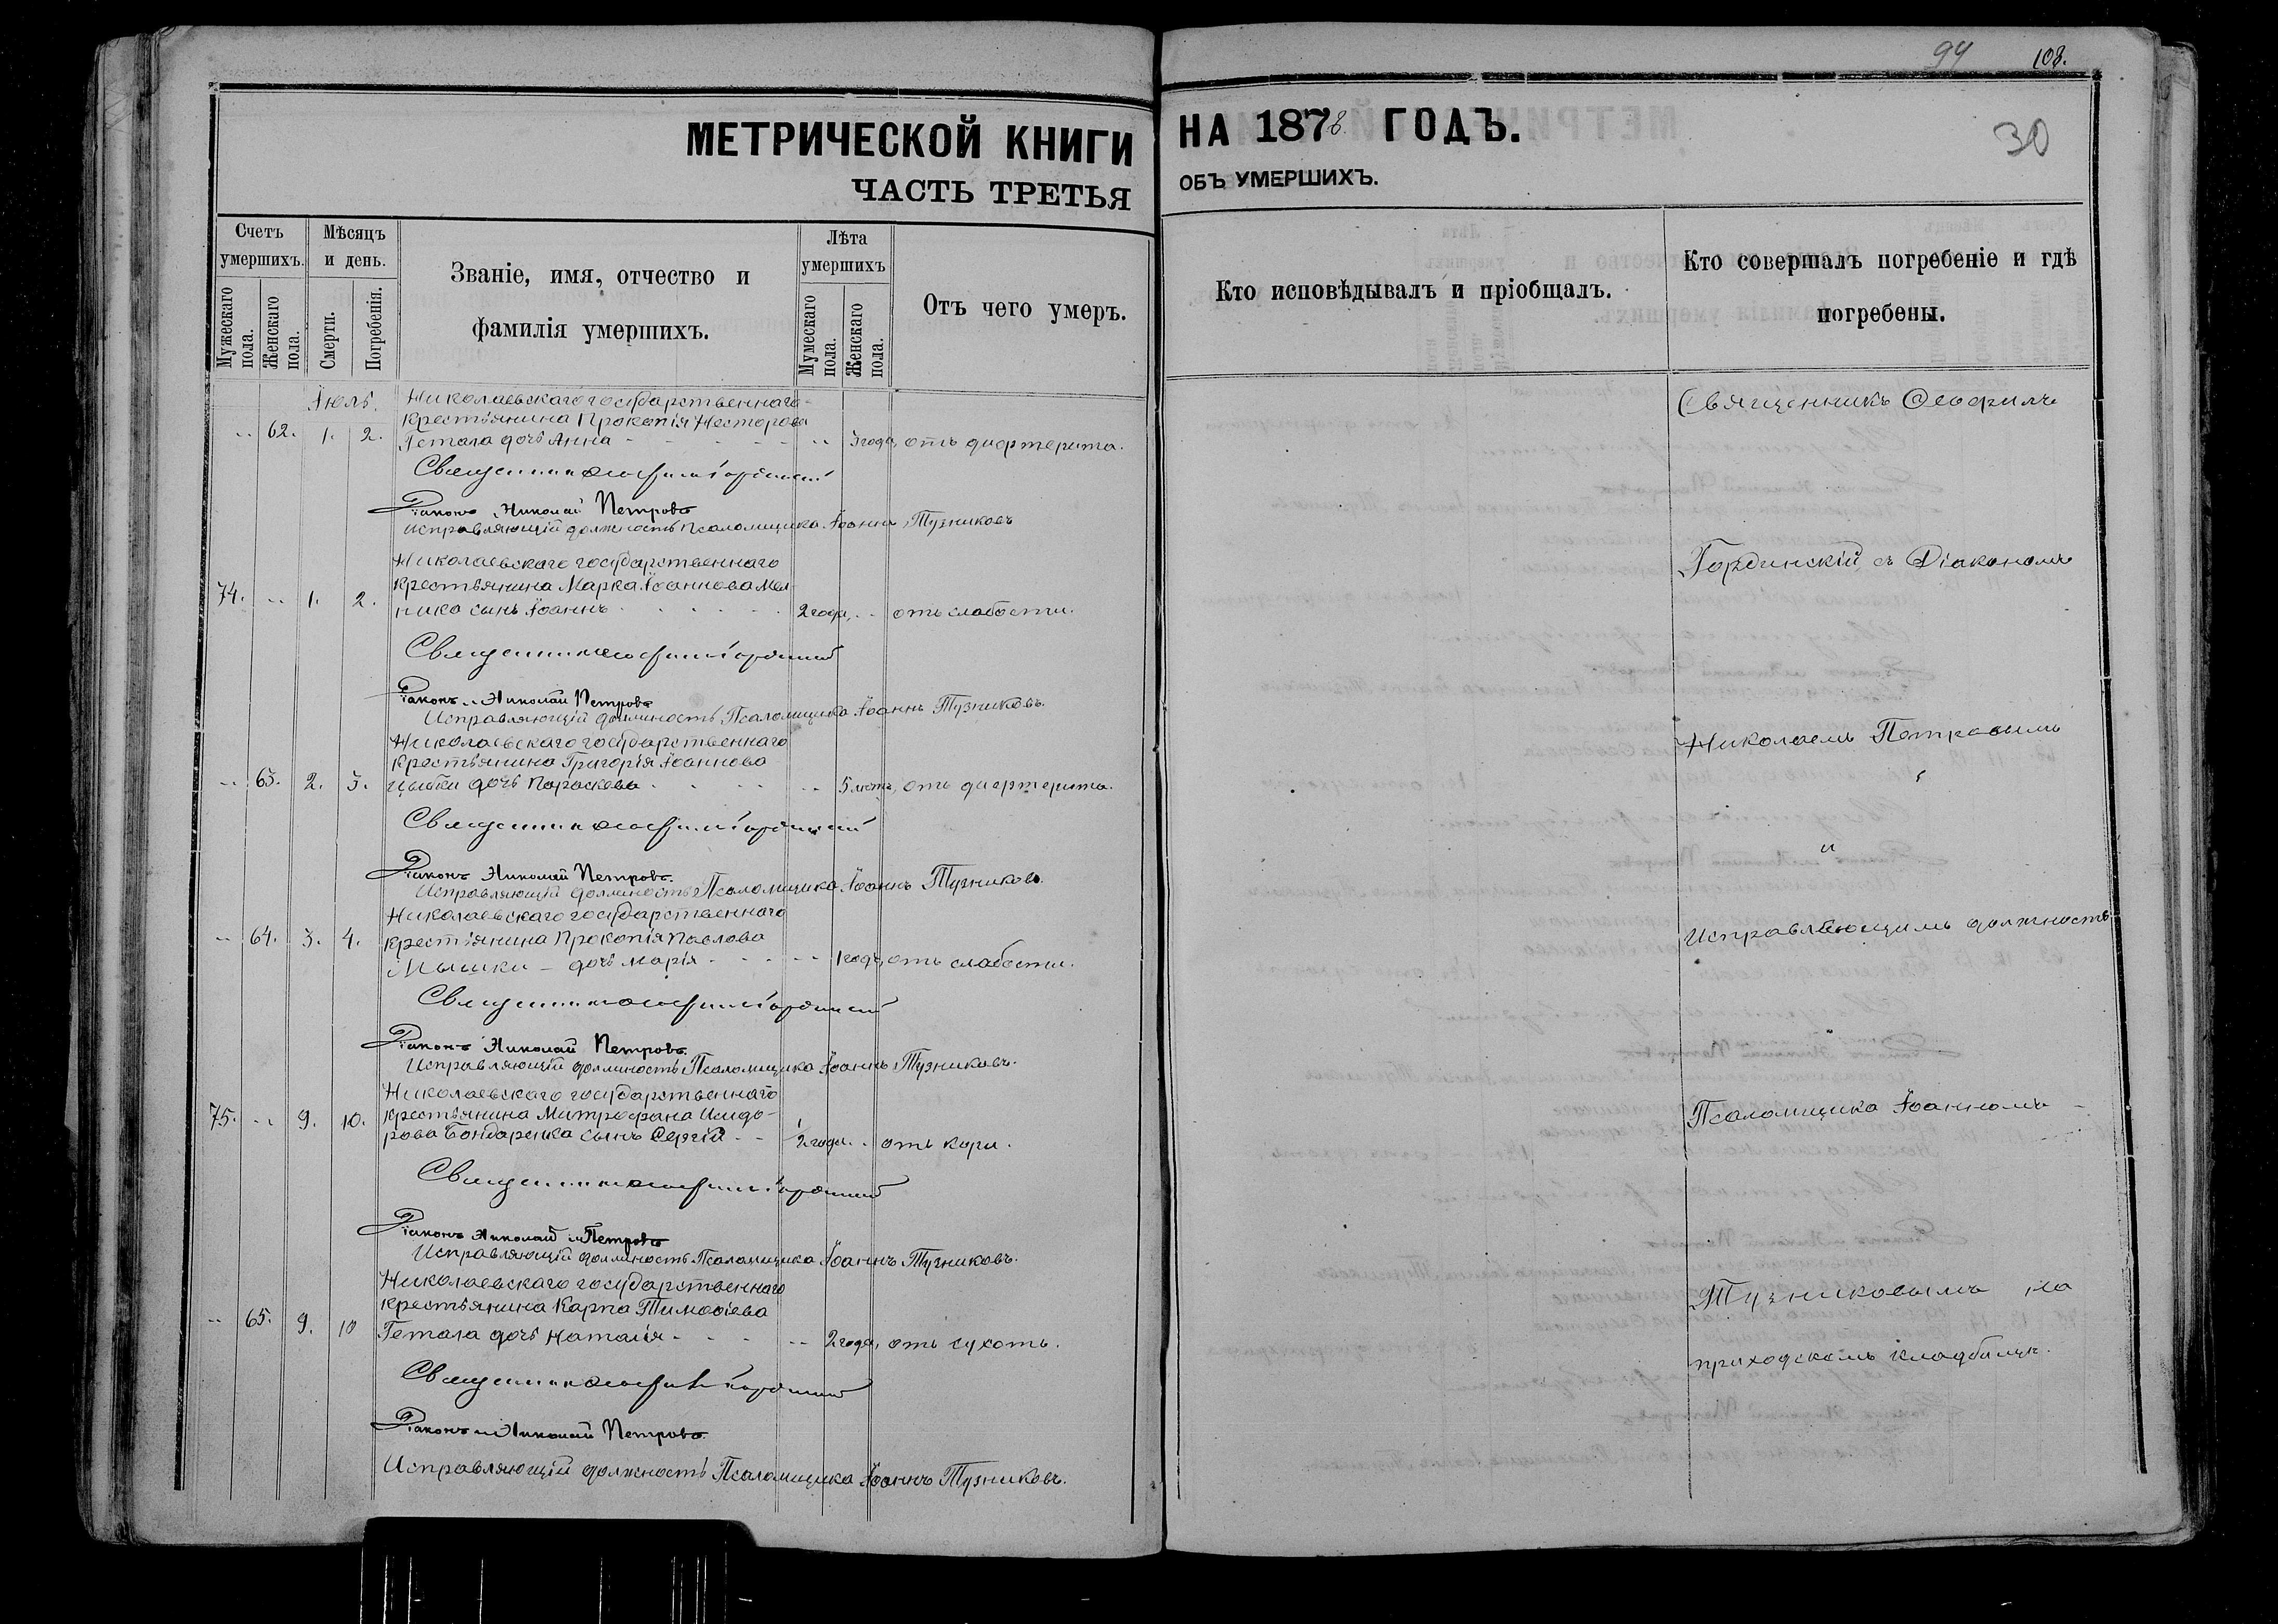 94 108.
МЕТРИЧЕСКОЙ КНИГИ НА 1878 ГОДЪ.
30
ЧАСТЬ ТРЕТЬЯ ОБЪ УМЕРШИХЪ.
Счетъ умершихъ.
Мужескаго пола.
Женскаго пола.
Мѣсяцъ и день.
Смерти.
Погребенія.
Званіе, имя, отчество и
фамилія умершихъ.
Лѣта умершихъ
Мужескаго пола.
Женскаго пола.
Отъ чего умеръ.
Кто исповѣдывалъ и пріобщалъ.
Кто совершалъ погребеніе и гдѣ
погребены.
Іюль.
Николаевскаго государственнаго
крестьянина Прокопія Несторова
62. 1. 2. Гетала дочь Анна 3 года, отъ дифтерита.
Священникъ Ѳеофилъ Гординскій
Діаконъ Николай Петровъ
исправляющій должность Псаломщика Іоаннъ Тузниковъ
Николаевскаго государственнаго
крестьянина Марка Іоаннова Мел-
74. 1. 2. ника сынъ Іоаннъ 2 года, отъ слабости.
Священникъ Ѳеофилъ Гординскій
Діаконъ Николай Петровъ
Исправляющій должность Псаломщика Іоаннъ Тузниковъ.
Николаевскаго государственнаго
крестьянина Григорія Іоаннова
63. 2. 3. дочь Параскева 5 лѣтъ, отъ дифтерита.
Священникъ Ѳеофилъ Гординскій
Діаконъ Николай Петровъ.
Исправляющій должность Псаломщика Іоаннъ Тузниковъ.
Николаевскаго государственнаго
64. 3. 4. крестьянина Прокопія Павлова
Мышки - дочь Марія 1 годъ, отъ слабости.
Священникъ Ѳеофилъ Гординскій
Діаконъ Николай Петровъ.
Исправляющій должность Псаломщика Іоаннъ Тузниковъ.
Николаевскаго государственнаго
75. 9. 10. крестьянина Митрофана Исидо-
рова Бондаренка сынъ Сергій 2 года отъ кори.
Священникъ Ѳеофилъ Гординскій
Діаконъ Николай Петровъ
Исправляющій должность Псаломщика Іоаннъ Тузниковъ.
Николаевскаго государственнаго
65. 9. 10 крестьянина Карпа Тимоѳіева
Гетала дочь Наталія 2 года, отъ сухотъ.
Священникъ Ѳеофилъ Гординскій
Діаконъ Николай Петровъ.
Исправляющій должность Псаломщика Іоаннъ Тузниковъ.
Священникъ Ѳеофилъ
Гординскій, съ Діакономъ
Николаемъ Петровымъ
и
Исправляющимъ должность
Псаломщика Іоанномъ
Тузниковымъ на
приходскомъ кладбищѣ.